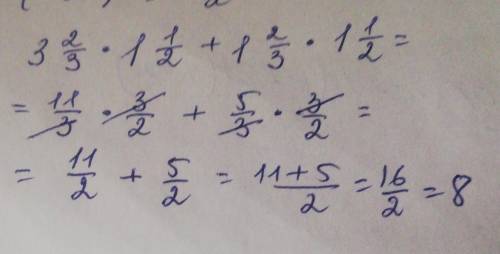 3 2/3 · 1 1/2 + 1 2/3 · 1 1/2 =
= 11/3 · 3/2 + 5/3 · 3/2 =
= 11/2 + 5/2 = 11+5/2 = 16/2 = 8